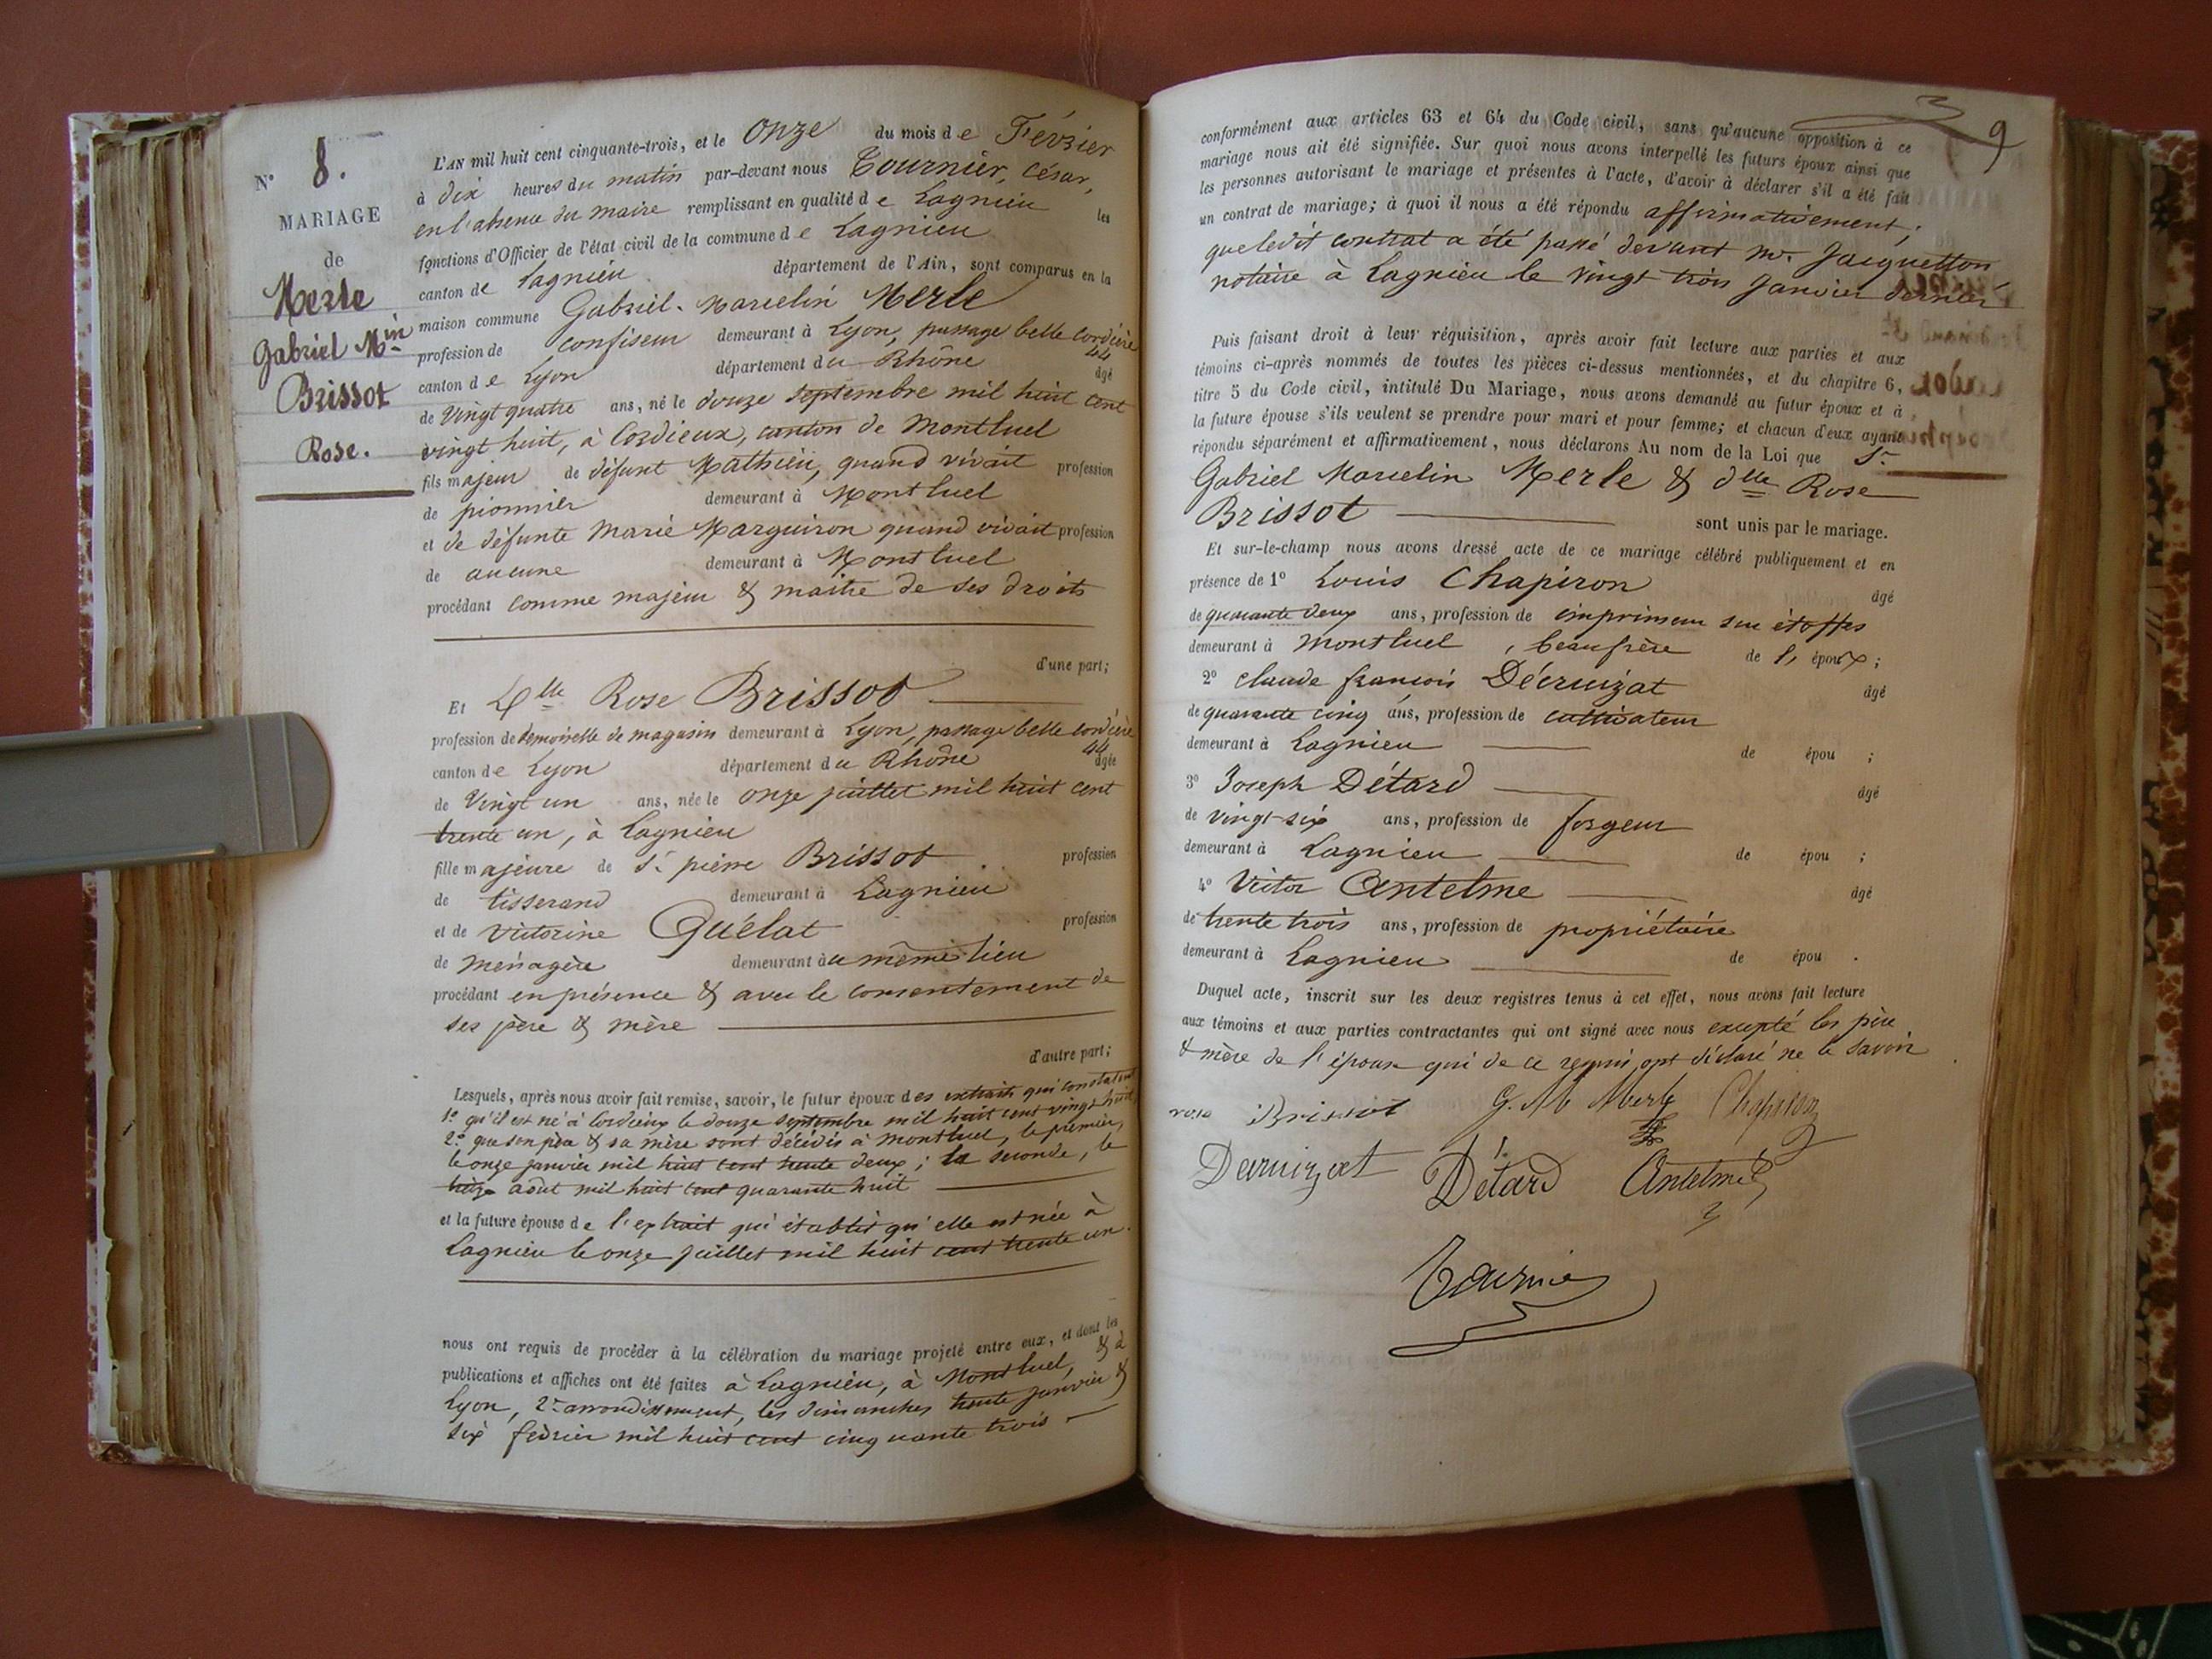 N° 8.
MARIAGE
de
Merle
Gabriel Min
Brissot
Rose.
L'AN mil huit cent cinquante-trois, et le onze du mois de Février
à dix heures du matin par-devant nous Tournier, César,
en l'absence du maire remplissant en qualité de Lagnieu les
fonctions d'Officier de l'état civil de la commune de Lagnieu
canton de Lagnieu département de l'Ain, sont comparus en la
maison commune Gabriel-Marcelin Merle
profession de confiseur demeurant à Lyon, passage belle cordière
44
canton de Lyon département du Rhône âgé
de Vingt quatre ans, né le douze septembre mil huit cent
vingt huit, à Cordieux, canton de Montluel
fils majeur de défunt Mathieu, quand vivait profession
de pionnier demeurant à Montluel
et de défunte Marie Marguiron quand vivait profession
de aucune demeurant à Montluel
procédant comme majeur & maître de ses droits
d'une part;
Et Dlle Rose Brissot
profession de demoiselle de magasin demeurant à Lyon, passage belle cordière
44
canton de Lyon département du Rhône âgée
de Vingt un ans, née le onze juillet mil huit cent
trente un, à Lagnieu
fille majeure de Sr pierre Brissot profession
de tisserand demeurant à Lagnieu
et de Victorine Guélat profession
de ménagère demeurant au même lieu
procédant en présence & avec le consentement de
ses père & mère
d'autre part;
Lesquels, après nous avoir fait remise, savoir, le futur époux des extraits qui constatent
1° qu'il est né à Cordieux le douze septembre mil huit cent vingt huit,
2° que son père & sa mère sont décédés à Montluel, le premier,
le onze janvier mil huit cent trente deux; la seconde, le
treize août mil huit cent quarante huit
et la future épouse de l'extrait qui établit qu'elle est née à
Lagnieu le onze juillet mil huit cent trente un.
nous ont requis de procéder à la célébration du mariage projeté entre eux, et dont les
publications et affiches ont été faites à Lagnieu, à Montluel, & à
Lyon, 2e arrondissement, les dimanches trente janvier &
six février mil huit cent cinquante trois
9
conformément aux articles 63 et 64 du Code civil, sans qu'aucune opposition à ce
mariage nous ait été signifiée. Sur quoi nous avons interpellé les futurs époux ainsi que
les personnes autorisant le mariage et présentes à l'acte, d'avoir à déclarer s'il a été fait
un contrat de mariage; à quoi il nous a été répondu affirmativement;
que ledit contrat a été passé devant me. Jacquetton
notaire à Lagnieu le vingt trois janvier dernier
Puis faisant droit à leur réquisition, après avoir fait lecture aux parties et aux
témoins ci-après nommés de toutes les pièces ci-dessus mentionnées, et du chapitre 6,
titre 5 du Code civil, intitulé Du Mariage, nous avons demandé au futur époux et à
la future épouse s'ils veulent se prendre pour mari et pour femme; et chacun d'eux ayant
répondu séparément et affirmativement, nous déclarons Au nom de la Loi que Sr
Gabriel Marcelin Merle & dlle Rose
Brissot sont unis par le mariage.
Et sur-le-champ nous avons dressé acte de ce mariage célébré publiquement et en
présence de 1° Louis Chapiron âgé
de quarante deux ans, profession de imprimeur sur étoffes
demeurant à Montluel, beaufrère de l' époux;
2° Claude françois Décruizat âgé
de quarante cinq ans, profession de cultivateur
demeurant à Lagnieu de épou ;
3° Joseph Détard âgé
de vingt-six ans, profession de forgeur
demeurant à Lagnieu de épou ;
4° Victor Antelme âgé
de trente trois ans, profession de propriétaire
demeurant à Lagnieu de épou .
Duquel acte, inscrit sur les deux registres tenus à cet effet, nous avons fait lecture
aux témoins et aux parties contractantes qui ont signé avec nous excepté les père
& mère de l'épouse qui de ce requis ont déclaré ne le savoir
rose Brissot G. M Merle Chapiron
Décruizat Détard Antelme
Tournier